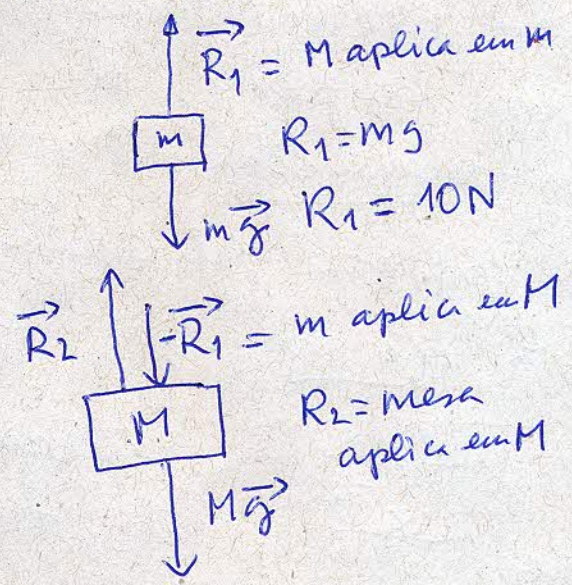 R₁ = M aplica em m
m
R₁ = mg
mg R₁ = 10N
R₂ -R₁ = m aplica em M
M
R₂ = mesa
aplica em M
Mg